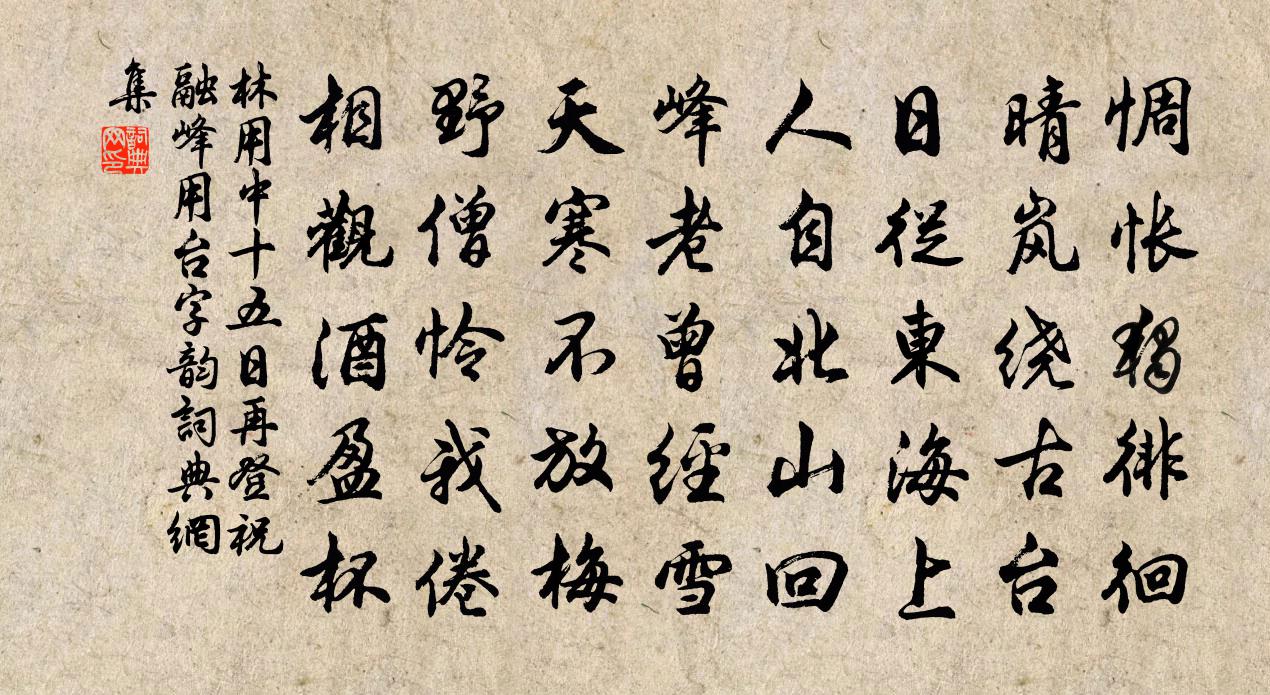 惆怅獨徘徊
晴岚绕古台
日從東海上
人自北山回
峰老曾經雪
天寒不放梅
野僧怜我倦
相觀酒盈杯
林用中十五日再登祝
融峰用台字韵詞典網
集
詞典
网印